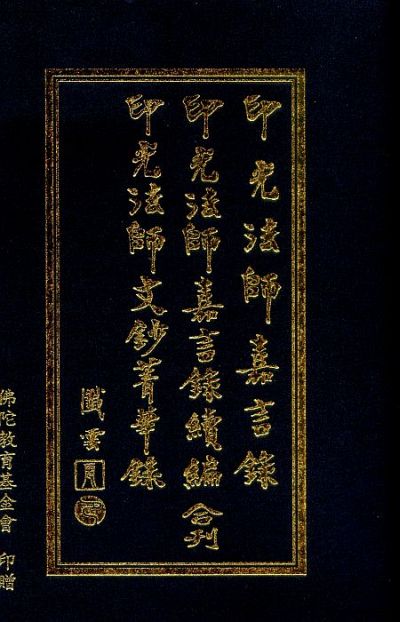 印光法師嘉言錄
印光法師嘉言錄續編 合刊
印光法師文鈔菁華錄
懺雲
佛陀教育基金會 印贈